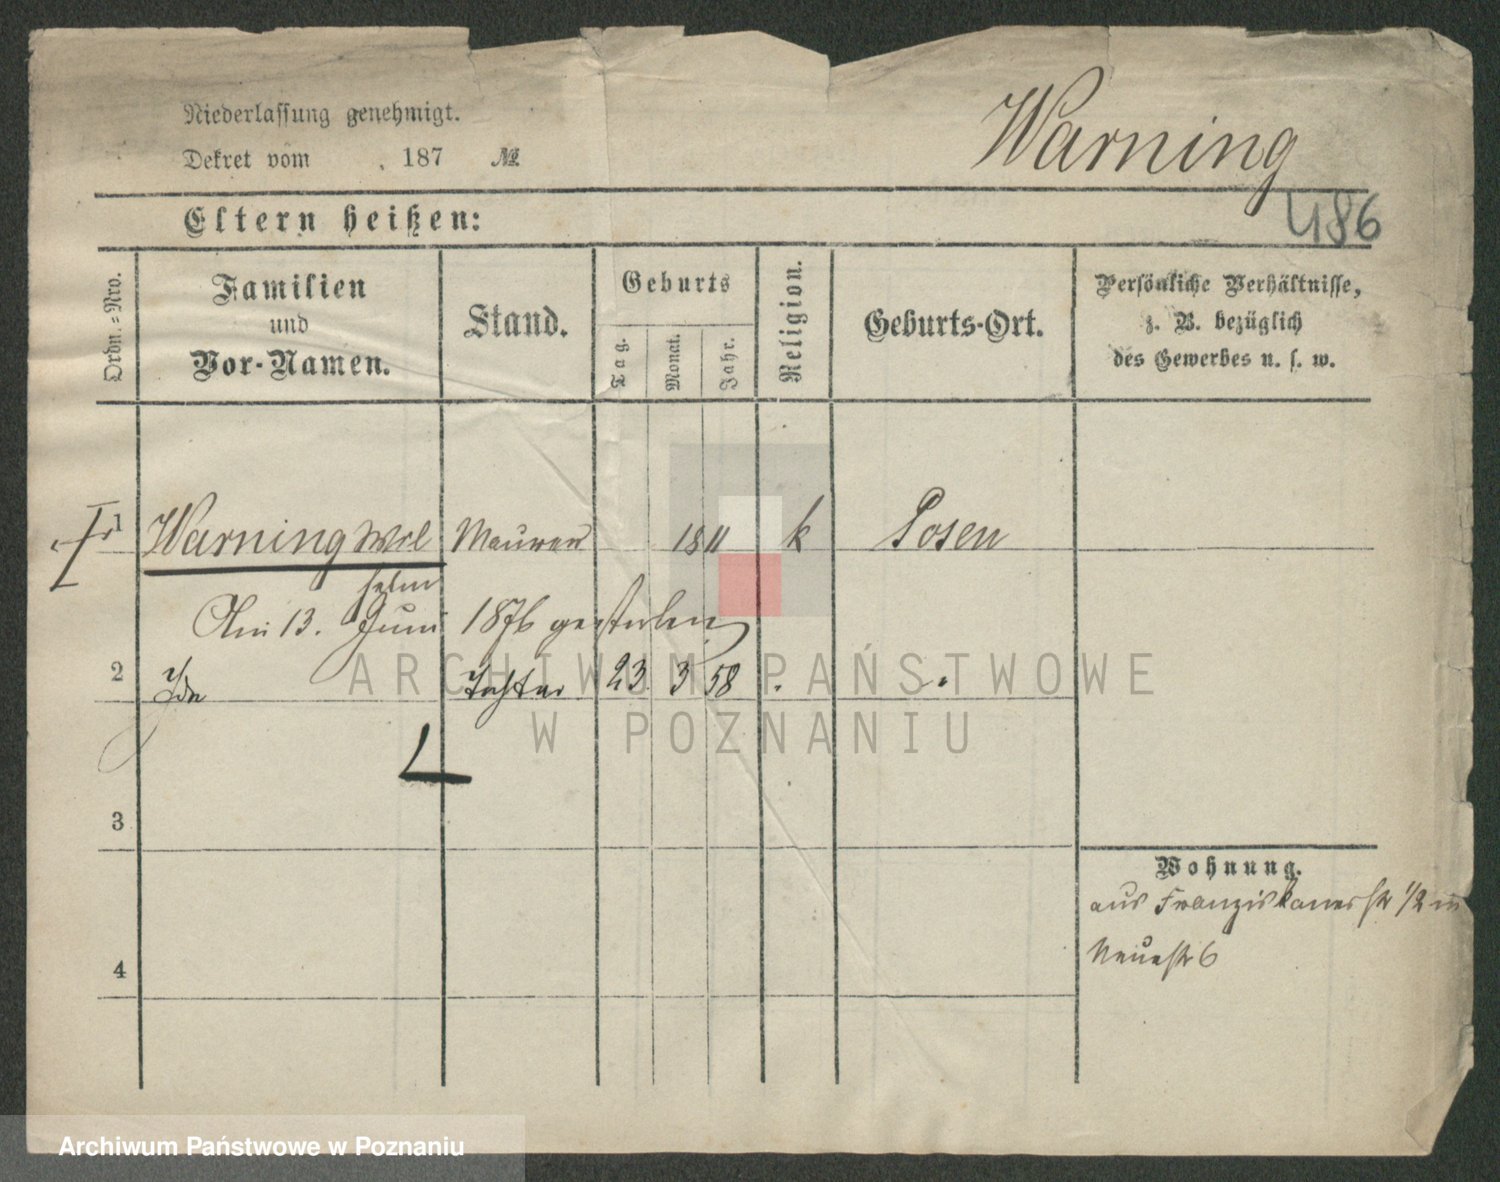 Niederlassung genehmigt.
Dekret vom . 187 №
Warning
486
Eltern heißen:
Ordn.-Nro.
Familien
und
Vor-Namen.
Stand.
Geburts
Tag.
Monat.
Jahr.
Religion.
Geburts-Ort.
Persönliche Verhältnisse,
z. B. bezüglich
des Gewerbes u. s. w.
1 Warning Wil Maurer 1811 k Posen
helm
Am 13. Juni 1876 gestorben
2 Ida Tochter 23. 3 58 . .
ARCHIWUM PAŃSTWOWE
W POZNANIU
3
Wohnung.
aus Franziskanerstr 1/2 in
Neuestr 6
4
Archiwum Państwowe w Poznaniu